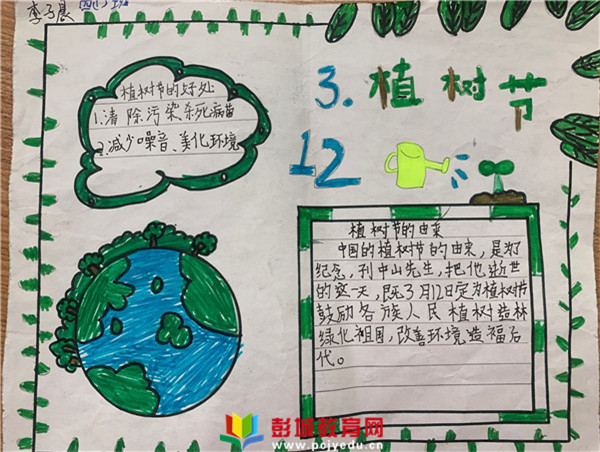 李子晨 四(7)班
3.植树节
12
植树节的好处
1.清除污染、杀死病菌
2.减少噪音、美化环境
植树节的由来
中国的植树节的由来,是为了
纪念,刊中山先生,把他逝世
的这一天,既3月12日定为植树节
鼓励各族人民植树造林
绿化祖国,改善环境造福后
代。
彭城教育网
www.pcjyedu.cn